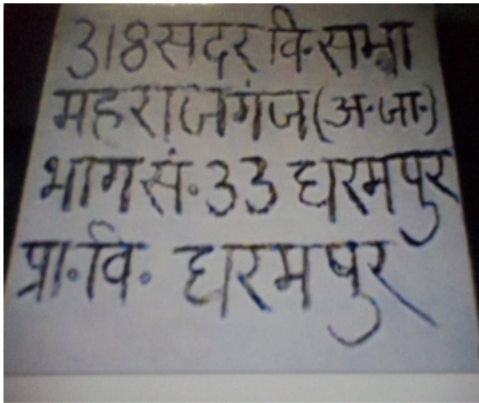 318 सदर वि॰सभा
महराजगंज (अ॰जा॰)
भाग सं॰ 33 धरमपुर
प्रा॰वि॰ धरमपुर